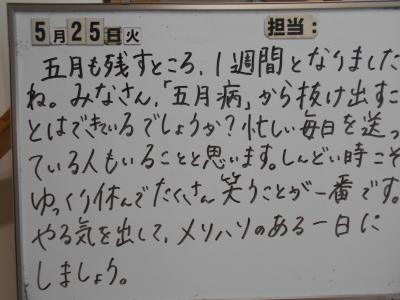 5月25日火 担当:
五月も残すところ、1週間となりました
ね。みなさん、「五月病」から抜け出すこ
とはできているでしょうか?忙しい毎日を送っ
ている人もいることと思います。しんどい時こそ
ゆっくり休んでたくさん笑うことが一番です。
やる気を出して、メリハリのある一日に
しましょう。